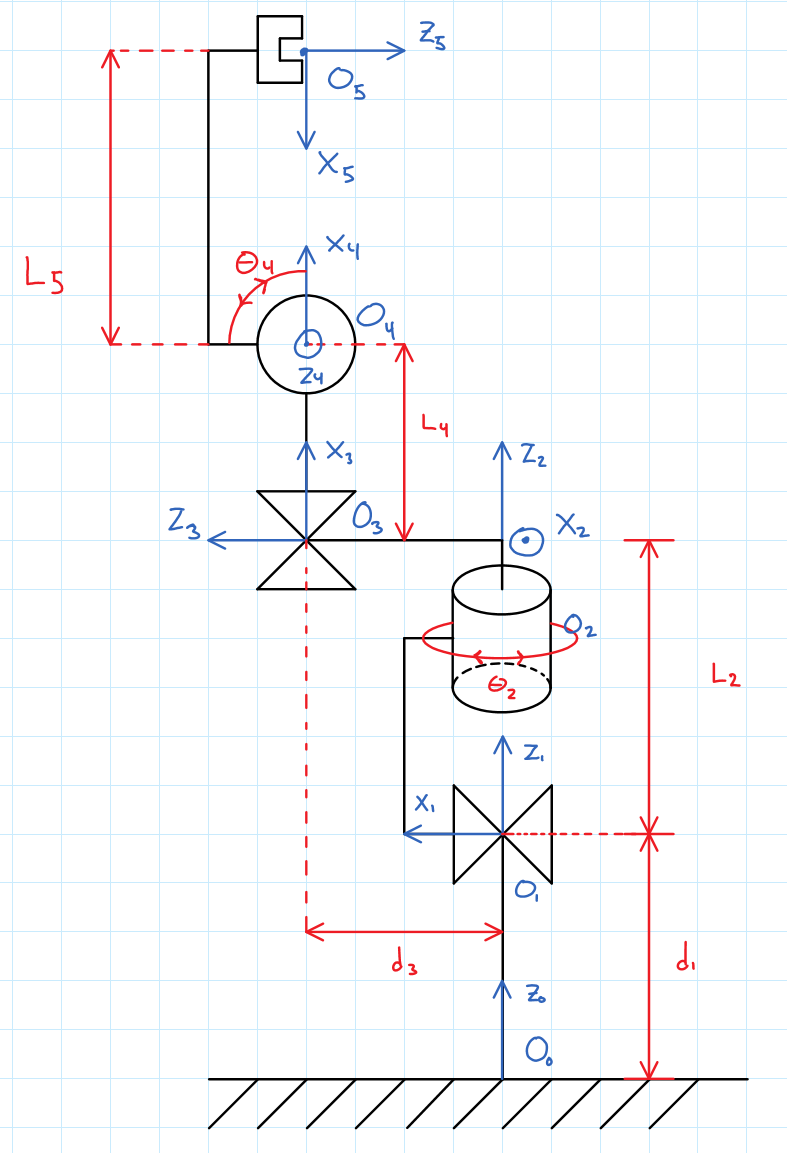 Z₅
O₅
X₅
X₄
L₅
Θ₄
O₄
Z₄
L₄
X₃
Z₂
Z₃
O₃
X₂
O₂
Θ₂
L₂
Z₁
X₁
O₁
d₃
d₁
Z₀
O₀